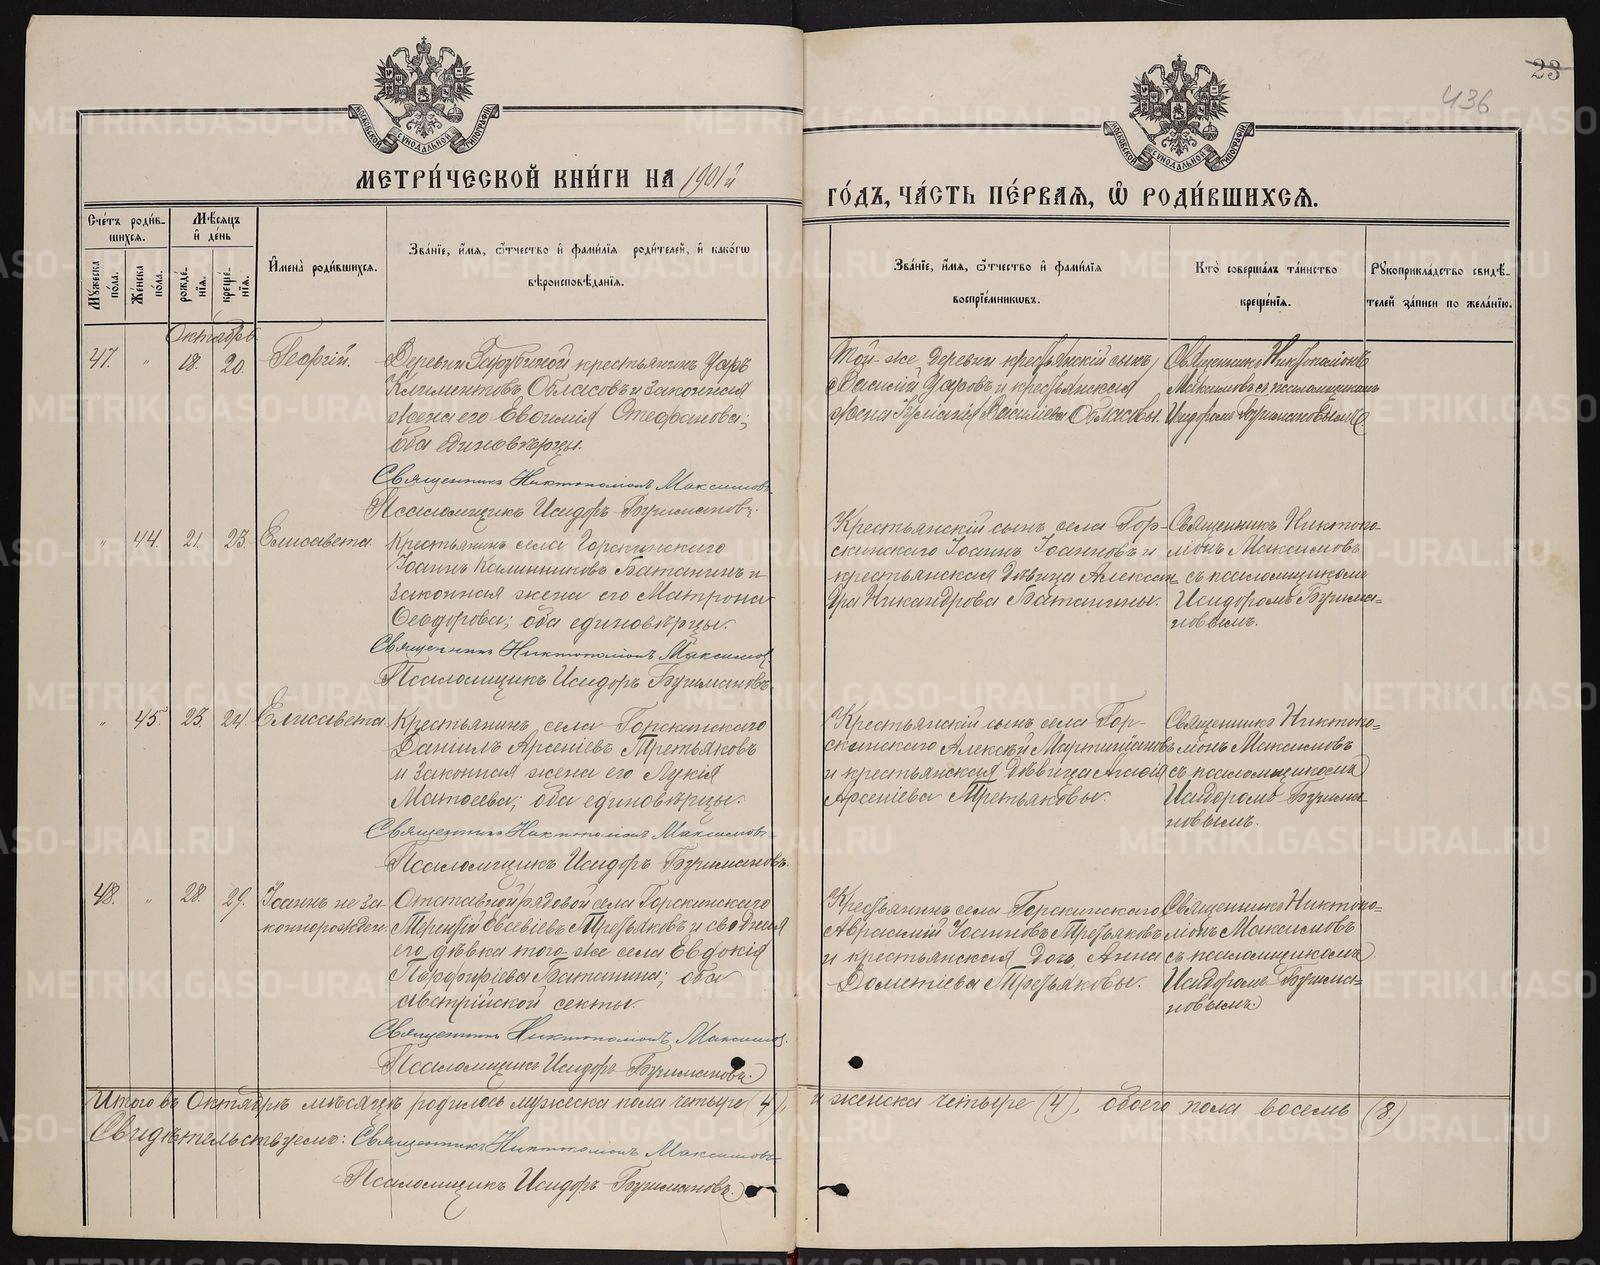 436
23
МЕТРИ́ЧЕСКОЙ КНИ́ГИ НА 1901й
ГО́ДЪ, ЧА́СТЬ ПЕ́РВАѦ, Ѡ҆ РОДИ́ВШИХСѦ.
Сче́тъ роди́в-
шихся.
Мѣ́сяцъ
и҆ де́нь
И҆мена̀ роди́вшихся.
Зва́нїе, и҆́мя, ѻ҆́тчество и҆ фами́лїя роди́телей, и҆ како́гѡ
вѣроисповѣ́данїя.
Мꙋ́жеска
по́ла.
Же́нска
по́ла.
рожде́-
нїя.
креще́-
нїя.
Зва́нїе, и҆́мя, ѻ҆́тчество и҆ фами́лїя
воспрїе́мникѡвъ.
Кто̀ соверша́лъ та́инство
креще́нїя.
Рꙋкоприкла́дство свидѣ́-
телей за́писи по жела́нїю.
Октябрь
47. " 18. 20. Георгій.
Деревни крестьянинъ Уаръ
Климентовъ Обласовъ и законная
жена его Евѳимія Стефанова;
оба единовѣрцы.
Священникъ Никтополіонъ Максимовъ
Псаломщикъ Исидоръ Бурмановъ.
Той-же деревни крестьянскій сынъ
Василій Уаровъ и крестьянская
жена Васильева Обласовы.
Священникъ Никтополіонъ
Максимовъ съ псаломщикомъ
Исидоромъ Бурмановымъ.
" 44. 21. 23. Елисавета.
Крестьянинъ села Горскинскаго
Іоаннъ Калинниковъ Батанинъ и
законная жена его Матрона
Ѳеодорова; оба единовѣрцы.
Священникъ Никтополіонъ Максимовъ
Псаломщикъ Исидоръ Бурмановъ.
Крестьянскій сынъ села Гор-
скинскаго Іоаннъ Іоанновъ и
крестьянская дѣвица Алексан-
дра Никандрова Батанины.
Священникъ Никтопо-
ліонъ Максимовъ
съ псаломщикомъ
Исидоромъ Бурма-
новымъ.
" 45. 23. 24. Елисавета.
Крестьянинъ села Горскинскаго
Даніилъ Арсеніевъ Третьяковъ
и законная жена его Лукія
Матѳеева; оба единовѣрцы.
Священникъ Никтополіонъ Максимовъ
Псаломщикъ Исидоръ Бурмановъ.
Крестьянскій сынъ села Гор-
скинскаго Алексѣй
и крестьянская дѣвица Агаѳія
Арсеніева Третьяковы.
Священникъ Никтопо-
ліонъ Максимовъ
съ псаломщикомъ
Исидоромъ Бурма-
новымъ.
48. " 28. 29. Іоаннъ не за-
коннорожден.
Отставной рядовой села Горскинскаго
Терентій Евсевіевъ Третьяковъ и сводная
его дѣвка того-же села Евдокія
Порфиріева Батанина; оба
австрійской секты.
Священникъ Никтополіонъ Максимовъ.
Псаломщикъ Исидоръ Бурмановъ.
Крестьянинъ села Горскинскаго
Авраамій Іоанновъ Третьяковъ
и крестьянская дочь Анна
Дометіева Третьяковы.
Священникъ Никтопо-
ліонъ Максимовъ
съ псаломщикомъ
Исидоромъ Бурма-
новымъ.
Итого въ Октябрѣ мѣсяцѣ родилось мужеска пола четыре (4), и женска четыре (4), обоего пола восемь (8)
Свидѣтельствуемъ: Священникъ Никтополіонъ Максимовъ
Псаломщикъ Исидоръ Бурмановъ.
METRIKI.GASO-URAL.RU